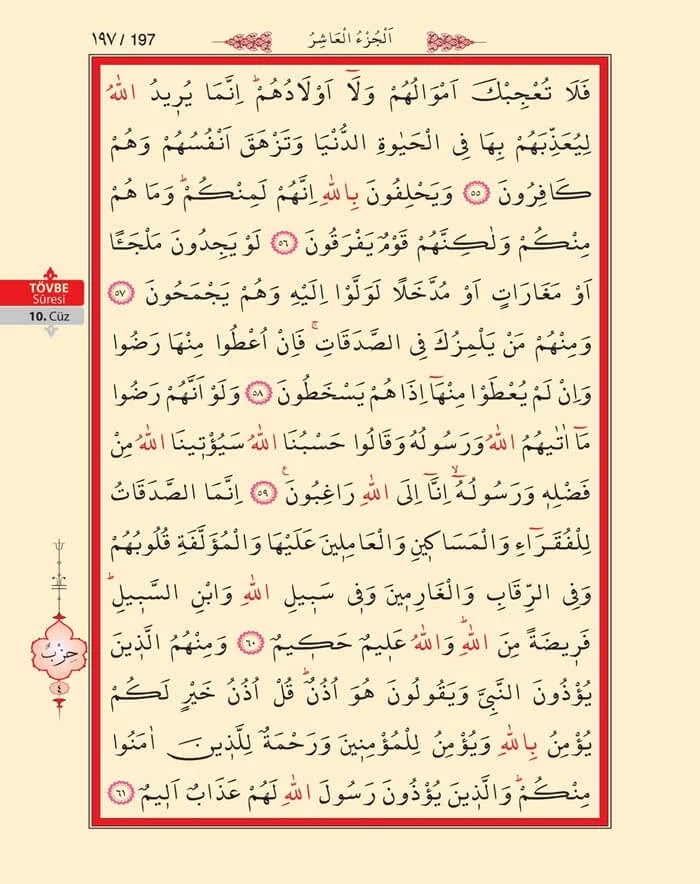 ١٩٧ / 197
اَلْجُزْءُ الْعَاشِرُ
فَلَا تُعْجِبْكَ اَمْوَالُهُمْ وَلَٓا اَوْلَادُهُمْۜ اِنَّمَا يُر۪يدُ اللّٰهُ
لِيُعَذِّبَهُمْ بِهَا فِي الْحَيٰوةِ الدُّنْيَا وَتَزْهَقَ اَنْفُسُهُمْ وَهُمْ
كَافِرُونَ ﴿٥٥﴾ وَيَحْلِفُونَ بِاللّٰهِ اِنَّهُمْ لَمِنْكُمْۜ وَمَا هُمْ
مِنْكُمْ وَلٰكِنَّهُمْ قَوْمٌ يَفْرَقُونَ ﴿٥٦﴾ لَوْ يَجِدُونَ مَلْجَـًٔا
اَوْ مَغَارَاتٍ اَوْ مُدَّخَلًا لَوَلَّوْا اِلَيْهِ وَهُمْ يَجْمَحُونَ ﴿٥٧﴾
وَمِنْهُمْ مَنْ يَلْمِزُكَ فِي الصَّدَقَاتِۚ فَاِنْ اُعْطُوا مِنْهَا رَضُوا
وَاِنْ لَمْ يُعْطَوْا مِنْهَٓا اِذَا هُمْ يَسْخَطُونَ ﴿٥٨﴾ وَلَوْ اَنَّهُمْ رَضُوا
مَٓا اٰتٰيهُمُ اللّٰهُ وَرَسُولُهُ وَقَالُوا حَسْبُنَا اللّٰهُ سَيُؤْت۪ينَا اللّٰهُ مِنْ
فَضْلِه۪ وَرَسُولُـهُٓۙ اِنَّٓا اِلَى اللّٰهِ رَاغِبُونَ۟ ﴿٥٩﴾ اِنَّمَا الصَّدَقَاتُ
لِلْفُقَرَٓاءِ وَالْمَسَاك۪ينِ وَالْعَامِل۪ينَ عَلَيْهَا وَالْمُؤَلَّفَةِ قُلُوبُهُمْ
وَفِي الرِّقَابِ وَالْغَارِم۪ينَ وَف۪ي سَب۪يلِ اللّٰهِ وَابْنِ السَّب۪يلِۜ
فَر۪يضَةً مِنَ اللّٰهِۜ وَاللّٰهُ عَل۪يمٌ حَك۪يمٌ ﴿٦٠﴾ وَمِنْهُمُ الَّذ۪ينَ
يُؤْذُونَ النَّبِيَّ وَيَقُولُونَ هُوَ اُذُنٌۜ قُلْ اُذُنُ خَيْرٍ لَكُمْ
يُؤْمِنُ بِاللّٰهِ وَيُؤْمِنُ لِلْمُؤْمِن۪ينَ وَرَحْمَةٌ لِلَّذ۪ينَ اٰمَنُوا
مِنْكُمْۜ وَالَّذ۪ينَ يُؤْذُونَ رَسُولَ اللّٰهِ لَهُمْ عَذَابٌ اَل۪يمٌ ﴿٦١﴾
TÖVBE
Sûresi
10. Cüz
حِزْبٌ
٤